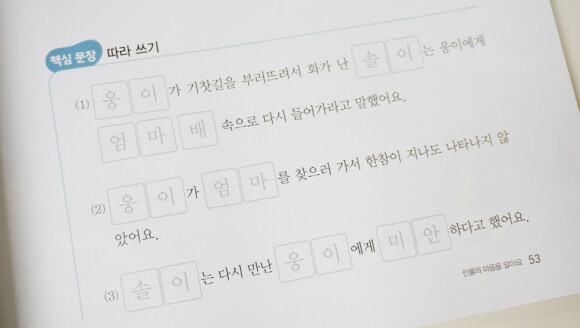 핵심 문장 따라 쓰기
(1) 웅이가 기찻길을 부러뜨려서 화가 난 솔이는 웅이에게
엄마 배 속으로 다시 들어가라고 말했어요.
(2) 웅이가 엄마를 찾으러 가서 한참이 지나도 나타나지 않
았어요.
(3) 솔이는 다시 만난 웅이에게 미안하다고 했어요.
인물의 마음을 알아요 53